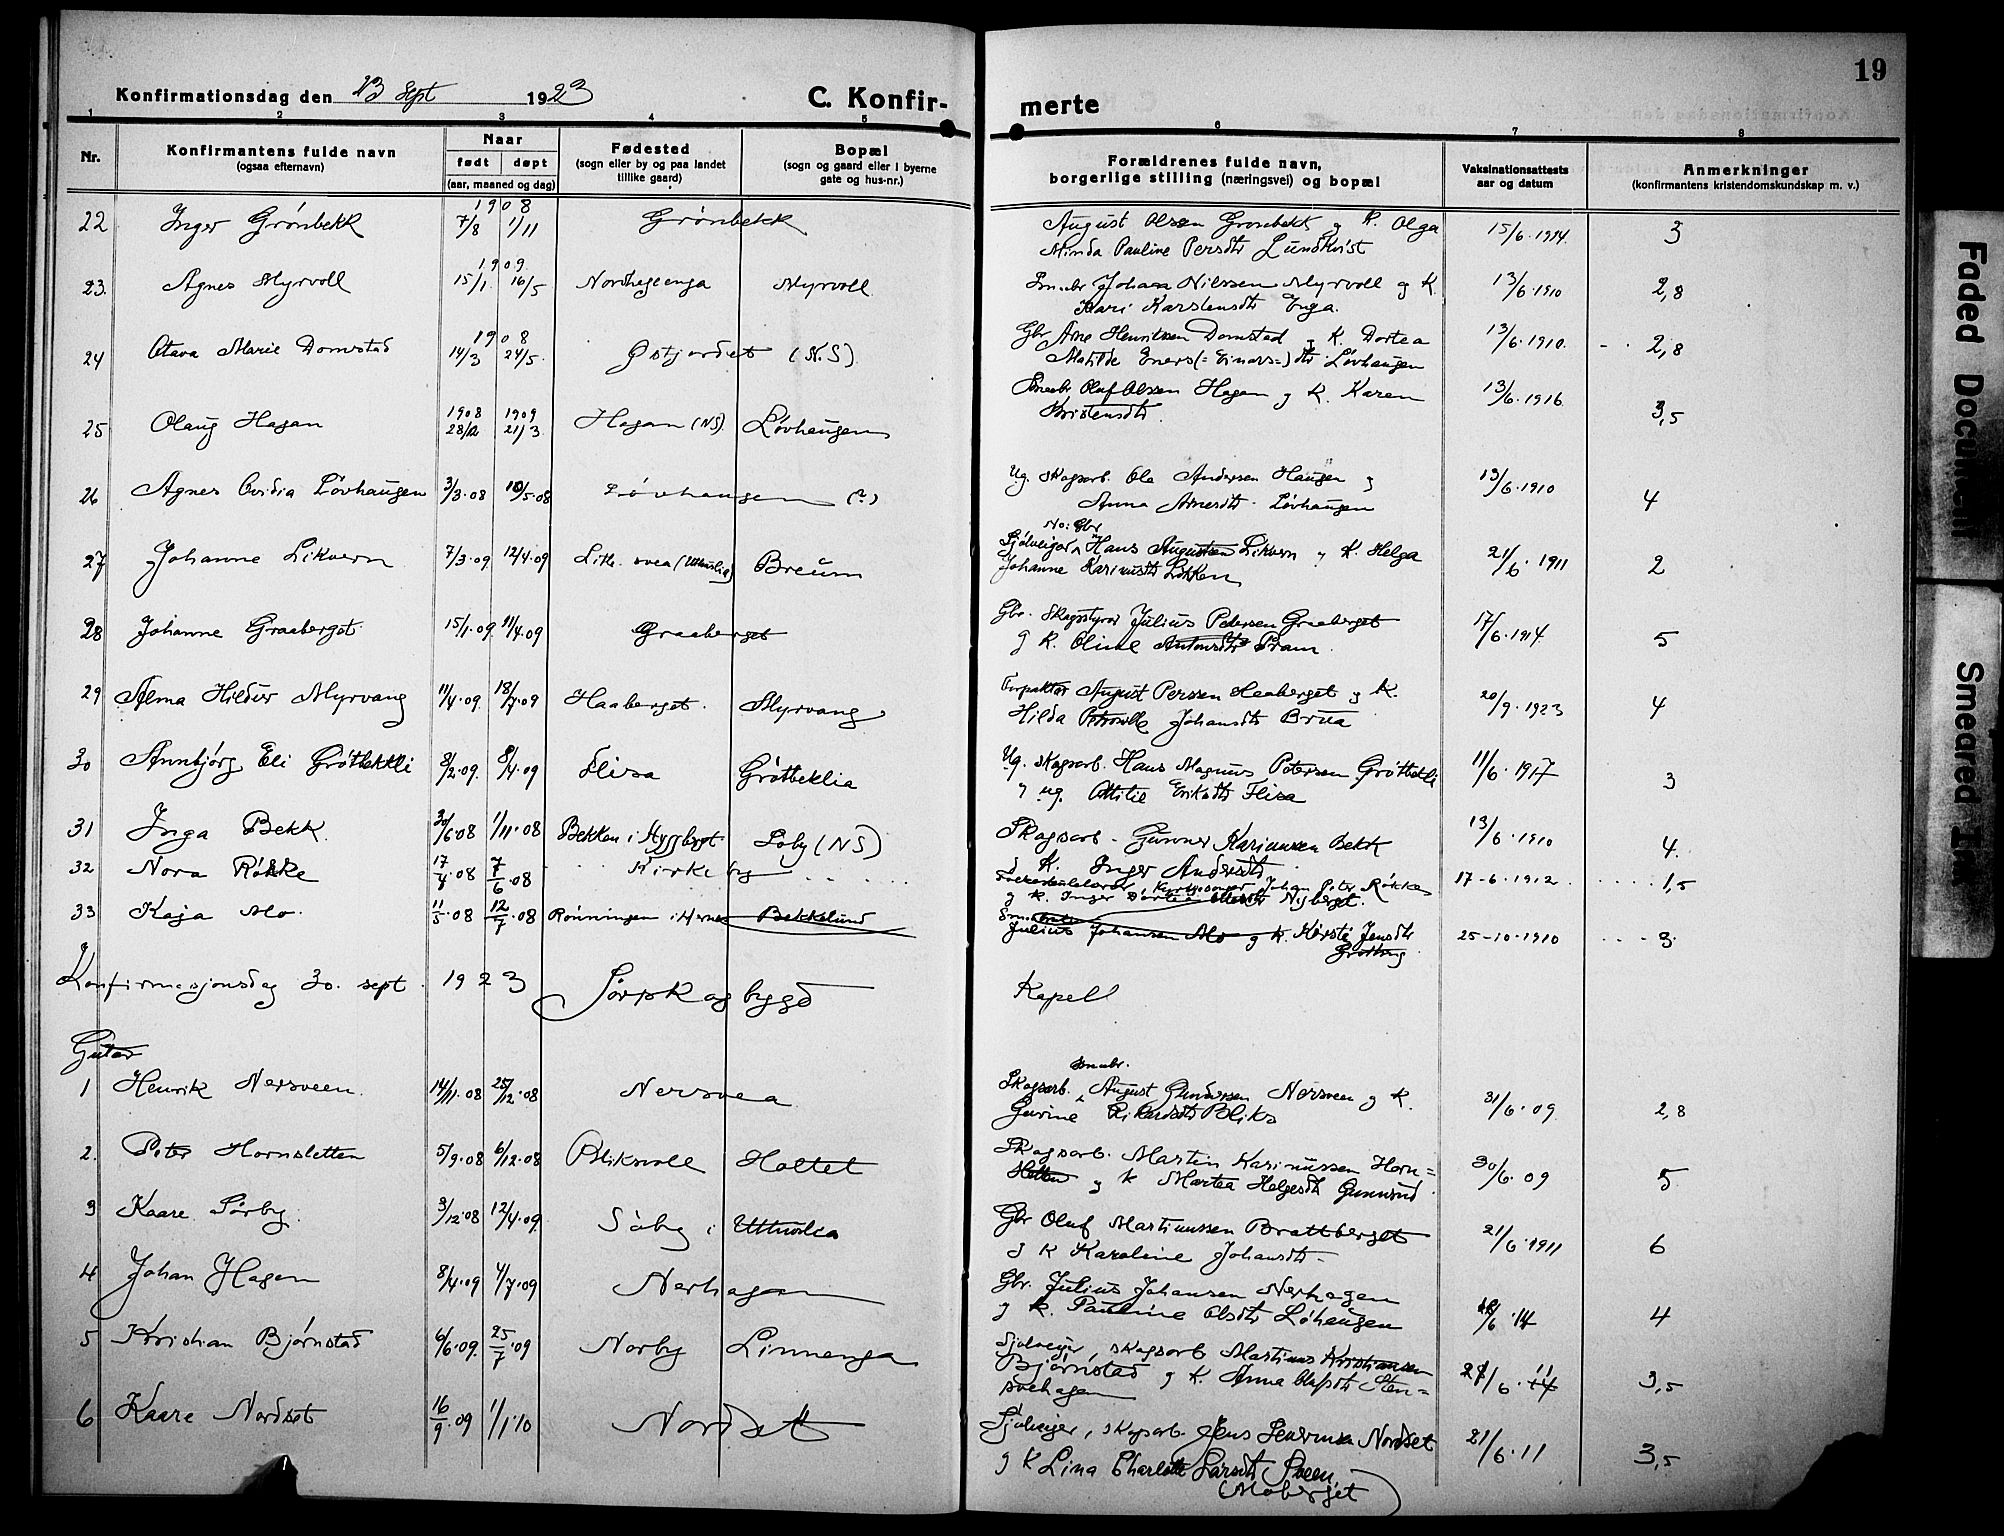 19
Konfirmationsdag den 23 sept 1923
C. Konfir-
merte
1 2 3 4 5 6 7 8
Nr.
Konfirmantens fulde navn
(ogsaa efternavn)
Naar
født døpt
(aar, maaned og dag)
Fødested
(sogn eller by og paa landet
tillike gaard)
Bopæl
(sogn og gaard eller i byerne
gate og hus-nr.)
Forældrenes fulde navn,
borgerlige stilling (næringsvei) og bopæl
Vaksinationsattests
aar og datum
Anmerkninger
(konfirmantens kristendomskundskap m. v.)
1908
22 Inger Grönbekk 7/8 1/11 Grönbekk August Olsen Grönbekk og K. Olga 15/6.1924. 3
Minda Pauline Persdtr Lundkvist
1909
23. Agnes Myrvoll 15/1. 16/5 Myrvoll Smabr Johan Nilssen Myrvoll og K. 13/6.1910 2,8
Kari Karstensdtr Enga.
1908
24 Otava Marie Domstad 14/3 24/5. Østjordet (N.S) Gbr Arne Henriksen Domstad og K. Dortea 13/6.1910. 2,8
Matilde Eners (=Einars=) dtr Lövhaugen
1908 1909
25 Olaug Hagan 28/12 21/3 Hagan (NS). Lövhaugen Smabr Oluf Olsen Hagan og K. Karen 13/6.1916 3,5
Kristensdtr.
26 Agnes Ovidia Lövhaugen 3/3.08 10/5.08 Lövhaugen (?) Ug. skogsarb. Ola Andersen Haugen og 13/6.1910 4
Anna Arnesdtr. Lövhaugen
No: Gbr
27 Johanne Likvern 7/3.09 12/4.09 Breum Sjølveigar Hans Augustsen Likvern og K. Helga 21/6.1911 2
Johanne Karinusdtr Løkken
28 Johanne Graaberget 15/1.09 11/4.09 Graaberget Gbr. Skogstyrer Julius Pedersen Graaberget 17/6.1914 5
og K. Oline Antonsdtr Bram.
29 Alma Hildur Myrvang 11/4.09. 18/7.09 Haaberget. Myrvang Forpaktar August Perssen Haaberget og K. 20/9.1923 4
Hilda Petronelle Johansdtr Brua
30 Annbjörg Eli Gröttbekkli 8/2.09. 8/4.09 Flisa Gröttbeklia Ug. skogsarb. Hans Magnus Petersen Gröttbekli 11/6.1917 3
og ug. Otilie Eriksdtr Flisa
31 Inga Bekk. 30/6.08 1/11.08 Loby (NS) Skogsarb. Gunner Karinussen Bekk 13/6.1910 4.
K. Inger Andersdtr
32 Nora Røkke 17/4.08 7/6.08 Kirkeby Johan Peter Røkke 17-6-1912. 1,5
og K. Inger Dortea Nyberget.
33 Kaja Mo. 11/5.08 12/7.08 Rønningen i Hernes Bekkelund Julius Johansen Mo og K. Kersti Jensdtr 25-10-1910 3.
Konfirmasjonsdag 30. sept. 1923 Sørskogbygd Kapell
Guter
Smabr.
1 Henrik Nersveen. 14/11.08 25/12.08 Nersvea Skogsarb. August Gundersen Nersveen og K. 31/6.09. 2,8
Gurine Rikardsdtr Bliks
2. Peter Hornsletten 5/9.08 6/12.08 Bliksvoll Holtet Skogsarb. Martin Karinussen Horn= 30/6.09 5
sletten og K Martea Helgesdtr Gunnrud
3 Kaare Sörby. 3/12.08 12/4.09. Söby i Utnäslia Gbr Oluf Martinussen Brattberget 21/6.1911 6
og K Karoline Johansdtr
4 Johan Hagen 8/4.09 4/7.09 Nerhagen Gbr. Julius Johansen Nerhagen 4
og K. Pauline Olsdtr Löhaugen
5 Kristian Björnstad 6/6.09. 25/7.09 Norby Linnenga Sjølveiger, skogsarb Martinus Kristiansen 3,5
Björnstad og K. Anna Olafsdtr Sten=
svehagen
6 Kaare Nordset 16/9.09 1/1.10 Nordset Sjølveiger, skogsarb. Jens Nordset 21/6.11 3,5
og K Lina Charlotte Larsdtr Sveen.
(Moberget)
Faded Document
Smeared Ink